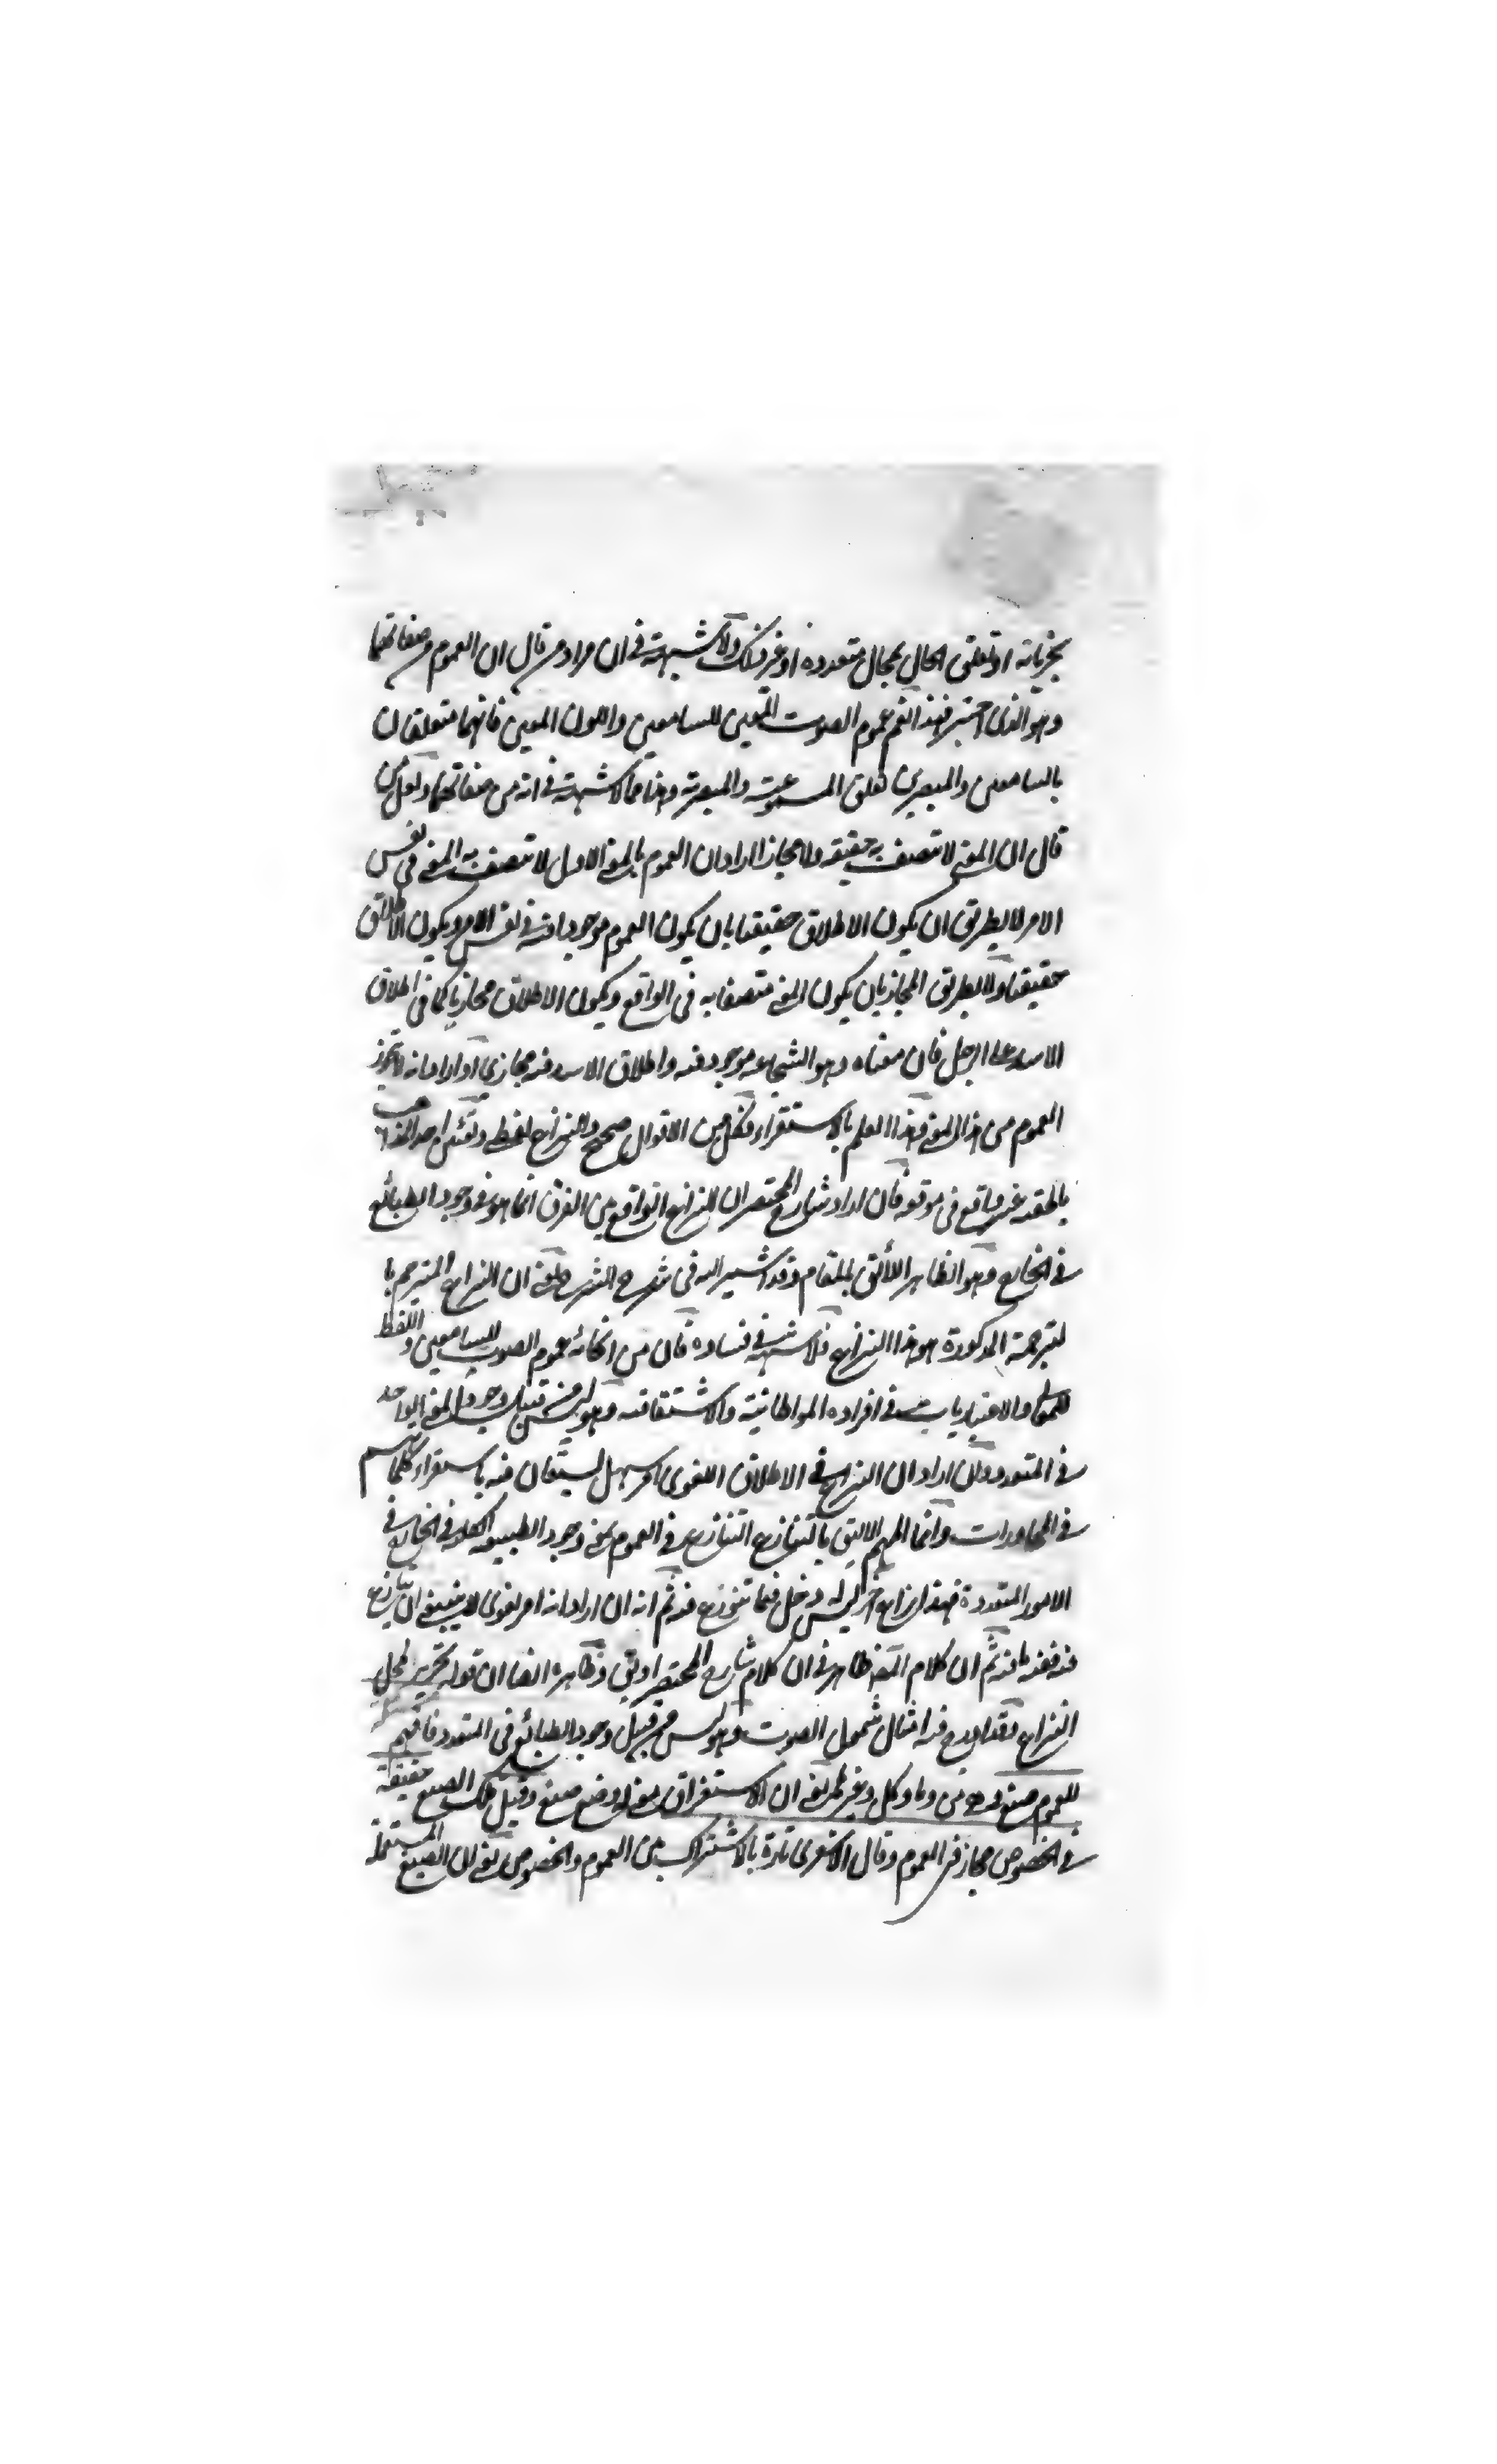 بجزئياته او تعلق الحال بمحال متعدده او غير ذلك ولا شبهة في ان مراد من قال ان العموم من صفاتهما
وهو الذي فهذا اعم عموم الصوت المعين للسامعين واللون المعين فانهما متعلقان
بالسامعين والمبصرين تعلق المسموعية والمبصرية وهذا مما لا شبهة في انه من صفاتهما ولعل من
قال ان المعنى لا تتصف به حقيقة ولا مجازا اراد ان العموم بالمعنى الاول لا تتصف به المعنى في نفس
الامر لا بطريق ان يكون الاطلاق حقيقيا بان يكون العموم موجودا فيه في نفس الامر ويكون الاطلاق
حقيقيا ولا بطريق المجاز بان يكون المعنى متصفا به في الواقع ويكون الاطلاق مجازيا كما في اطلاق
الاسد على الرجل فان معناه وهو الشجاعه موجود فيه واطلاق الاسد فيه مجازي او اراد انه لا تجوز
العموم من هذا المعنى وهذا العلم بالاستقراء فكل من الاقوال صحيح والنزاع لفظي احد المذاهب
غير واقع في موقعه فان اراد شارح المختصر ان النزاع الواقع بين الفرق انما هو في وجود الطبائع
في الخارج وهو الظاهر الأليق بالمقام وقد اشير اليه في شرح الشرح يعني ان النزاع المترجم با
لترجمة المذكورة هو هذا النزاع فلا شبهة في فساده فان من انحائه عموم الصوت للسامعين واللفظ
للمعاني والاعتباريات في افراده المواطاتية والاشتقاقية وهو ليس من قبيل وجود المعنى الواحد
في المتعدد وان اراد ان النزاع في الاطلاق اللغوي امر سهل يستعان فيه باستقراء كلماتهم
في المحاورات وانما المهم الاليق بالتنازع التنازع في العموم بمعنى وجود الطبيعه الكلية في الخارج في
الامور المتعددة فهذا نزاع آخر ليس له دخل فيما تنوزع فيه ثم انه ان اراد انه امر لغوي لا ينبغي ان ينازع
فيه ففيه ما فيه ثم ان كلام المص ظاهر في ان كلام شارح المختصر اوثق وظاهره ايضا ان قوله تحرير لمحل
النزاع فيه امثال شمول الصوت وهو ليس من قبيل وجود الطبائع في المتعدد فافهم
للعموم صيغ وهي من وما وكل وغيرها يعني ان الاستغراق معنى له وضع صيغ وقيل تلك الصيغ حقيقة
في الخصوص مجاز في العموم وقال الاشعري تارة بالاشتراك بين العموم والخصوص يعني ان الصيغ المستعملة